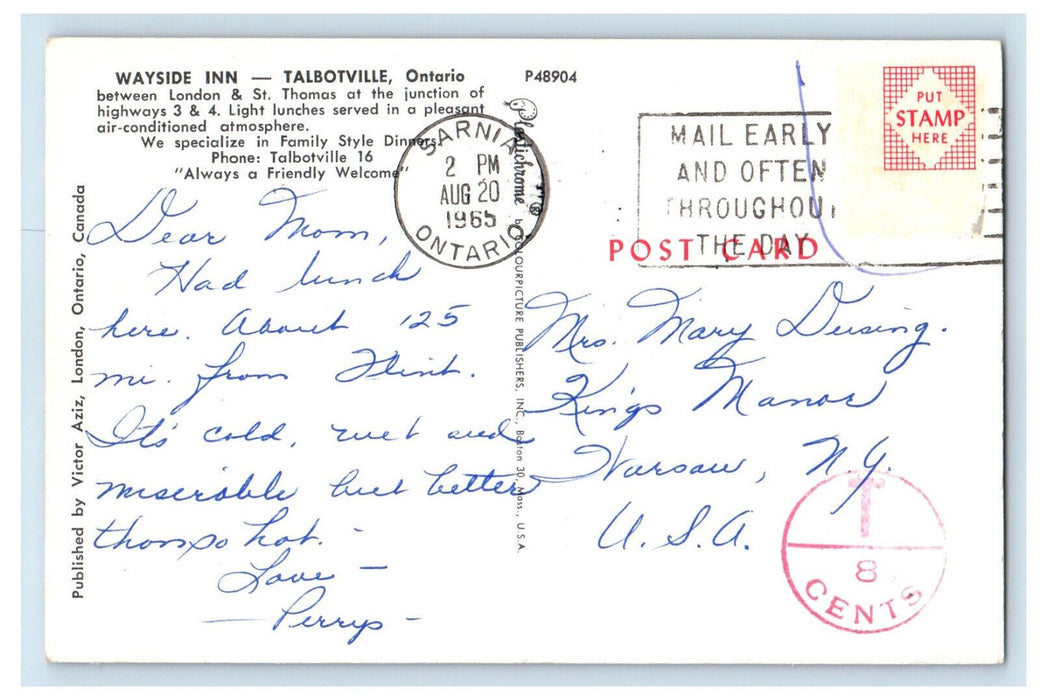 WAYSIDE INN — TALBOTVILLE, Ontario
between London & St. Thomas at the junction of
highways 3 & 4. Light lunches served in a pleasant
air-conditioned atmosphere.
We specialize in Family Style Dinners.
Phone: Talbotville 16
"Always a Friendly Welcome"
P48904
Published by Victor Aziz, London, Ontario, Canada
Plastichrome ® by COLOURPICTURE PUBLISHERS, INC., Boston 30, Mass., U.S.A.
SARNIA
2 PM
AUG 20
1965
ONTARIO
MAIL EARLY
AND OFTEN
THROUGHOUT
THE DAY
PUT
STAMP
HERE
POST CARD
Dear Mom,
Had lunch
here. About 125
mi. from Flint.
It's cold, wet and
miserable but better
than so hot.
Love —
— Perrys —
Mrs. Mary Dusing.
Kings Manor
Warsaw, N.Y.
U.S.A.
T
8
CENTS